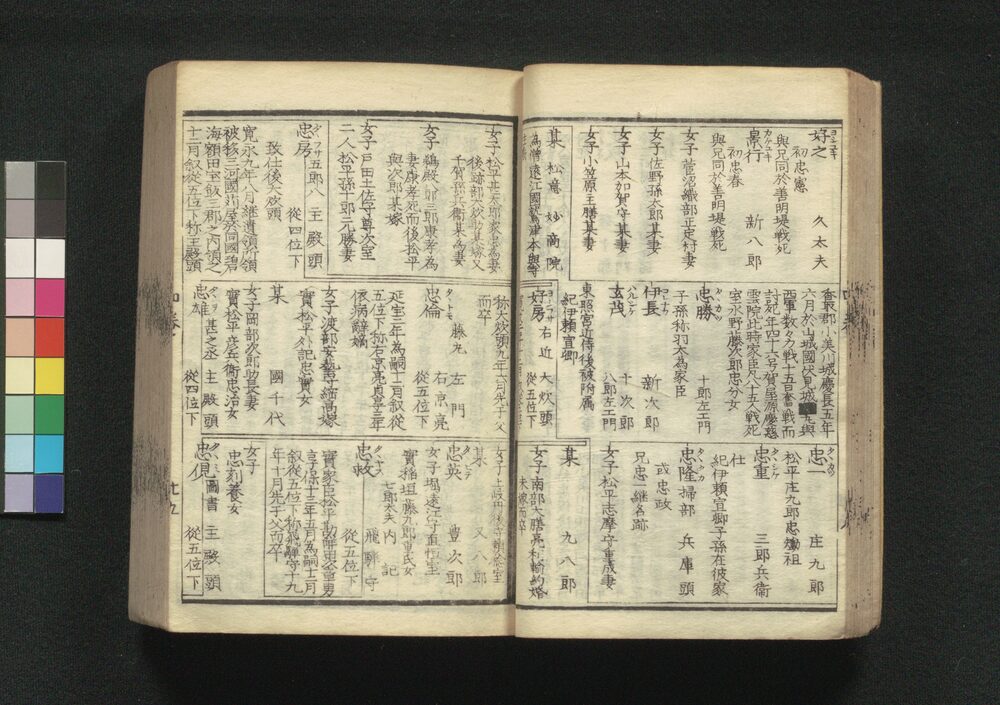 好之 久太夫
初忠憲
與兄同於善明堤戦死
景行 新八郎
初忠春
與兄同於善明堤戦死
女子 菅沼織部正定村妻
女子 佐野孫太郎某妻
女子 山本加賀守某妻
女子 小笠原主膳某妻
某 松意 妙高院
香取郡小美川城慶長五年
六月於山城國伏見城
西軍数々力戦十五日奮戦而
討死年四十六号賀屋源慶惑
雲院此時家臣八十五人戦死
室水野藤次郎忠分女
忠勝 十郎左エ門
子孫称羽太為家臣
伊長 新次郎
玄茂 千次郎
八郎左エ門
東照宮近侍後被附属
紀伊頼宣卿
好房 右近 大炊頭
従五位下
忠一 庄九郎
松平庄九郎忠勷祖
忠重 三郎兵衛
仕
紀伊頼宣卿子孫在彼家
忠隆 掃部 兵庫頭
或忠政
兄忠一継名跡
女子 松平志摩守重成妻
某 九八郎
女子 南部大膳亮利幹約婚
未嫁而卒
女子 松平甚太郎家忠為妻
後跡部大炊助某嫁又
千賀孫兵衛某為妻
女子 鵜殿八郎三郎康孝為
妻康孝死而後松平
與次郎某嫁
女子 戸田土佐守尊次室
二人 松平孫三郎元勝妻
忠房 五郎八 主殿頭
致仕後大炊頭 従四位下
寛永九年八月継遺領所領
被移三河國刈屋然同國碧
海額田室飯三郡之内領之
十二月叙従五位下称主殿頭
称大炊頭九年六月先于父
而卒
忠倫 藤九 左門
右京亮
従五位下
延宝三年為嗣十二月叙従
五位下称右京亮貞享三年
依病辞嫡
女子 渡部安藝守綱高嫁
實松平外記忠實女
某 國千代
女子 岡部次郎助長妻
實松平彦兵衛忠治女
忠雄 甚之丞 主殿頭
従四位下
某 又八郎
忠英 豊次郎
女子 堀遠江守直恒室
實稲垣藤九郎重氏女
忠救 七郎太夫 内記
飛騨守
従五位下
實家臣松平勘解由次章男
享保十三年五月為嗣十二月
叙従五位下称飛騨守十九
年十月先于父而卒
女子
忠刻養女
忠俔 圖書 主殿頭
従五位下